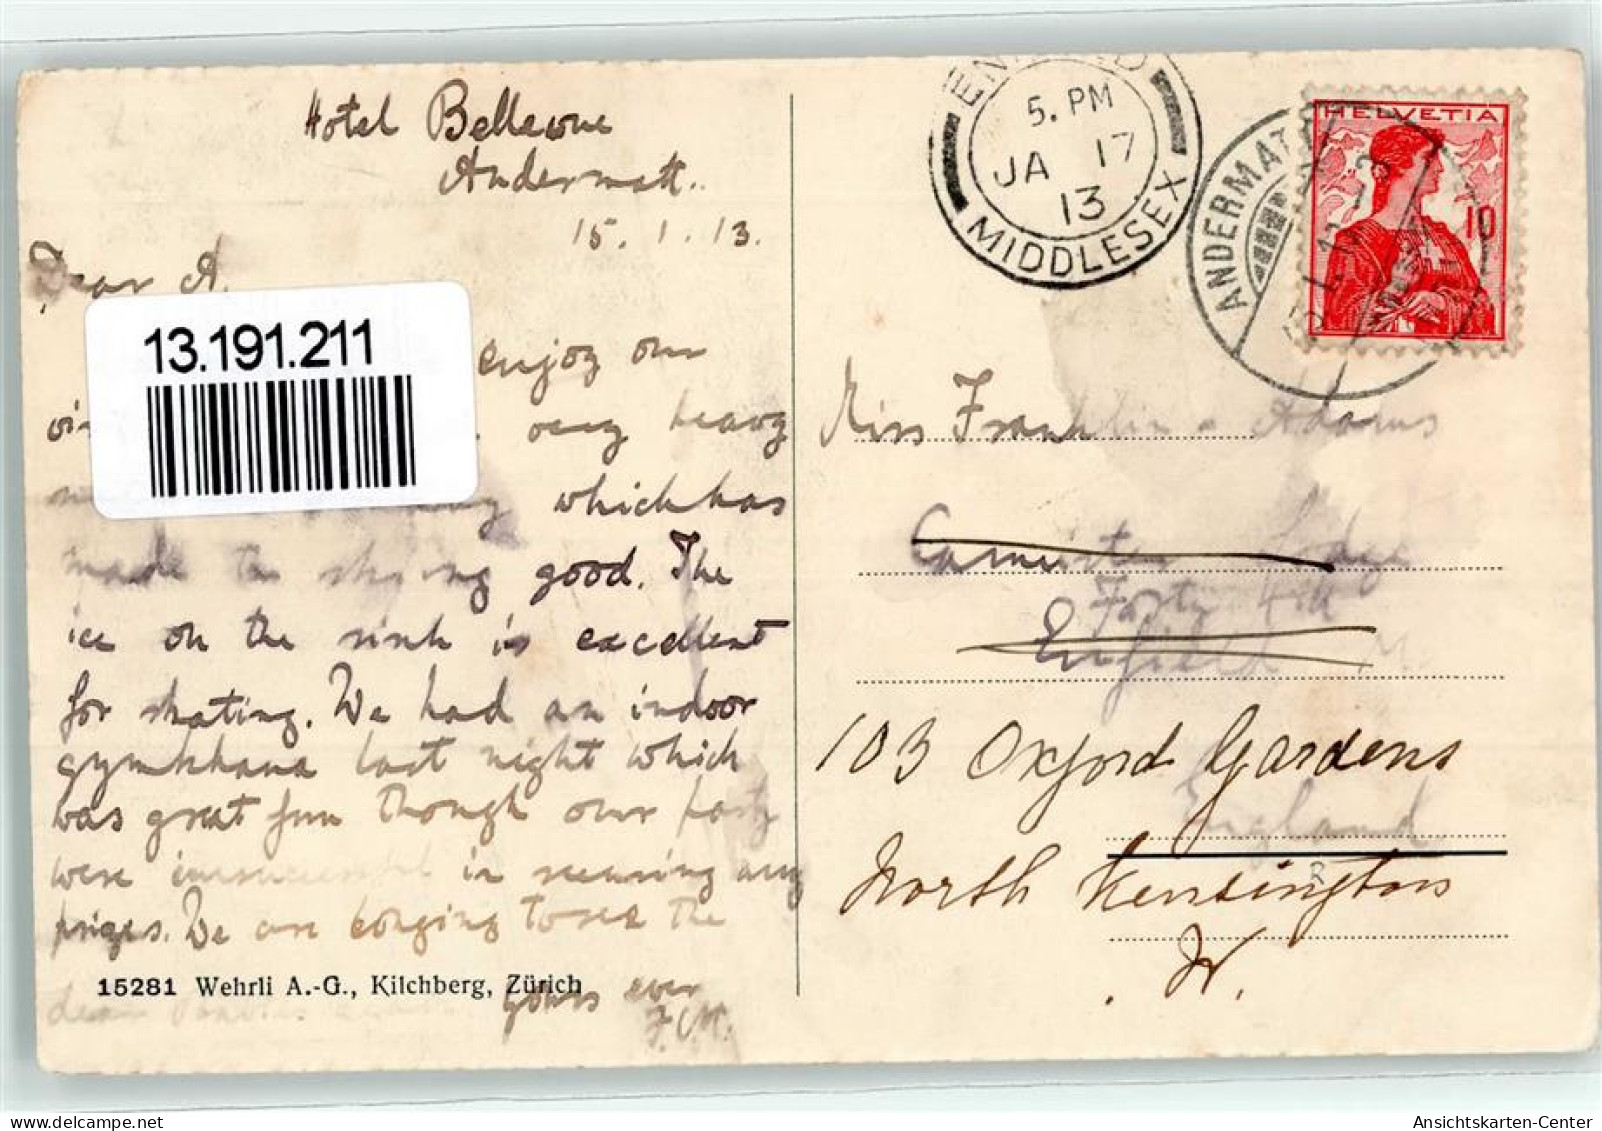 Hotel Bellevue
Andermatt.
15.1.13.
Dear A.
13.191.211
enjoy our
very heavy
which has
made the skiing good. The
ice on the rink is excellent
for skating. We had an indoor
gymkhana last night which
was great fun though our party
were unsuccessful in securing any
prizes. We are longing to see the
15281 Wehrli A.-G., Kilchberg, Zürich
dear
yours ever
ENFIELD
5. PM
JA 17
13
MIDDLESEX
ANDERMATT
HELVETIA
10
Miss Franklin Adams
Lodge
Forty Hill
Enfield
103 Oxford Gardens
England
North Kensington
W.
Ansichtskarten-Center